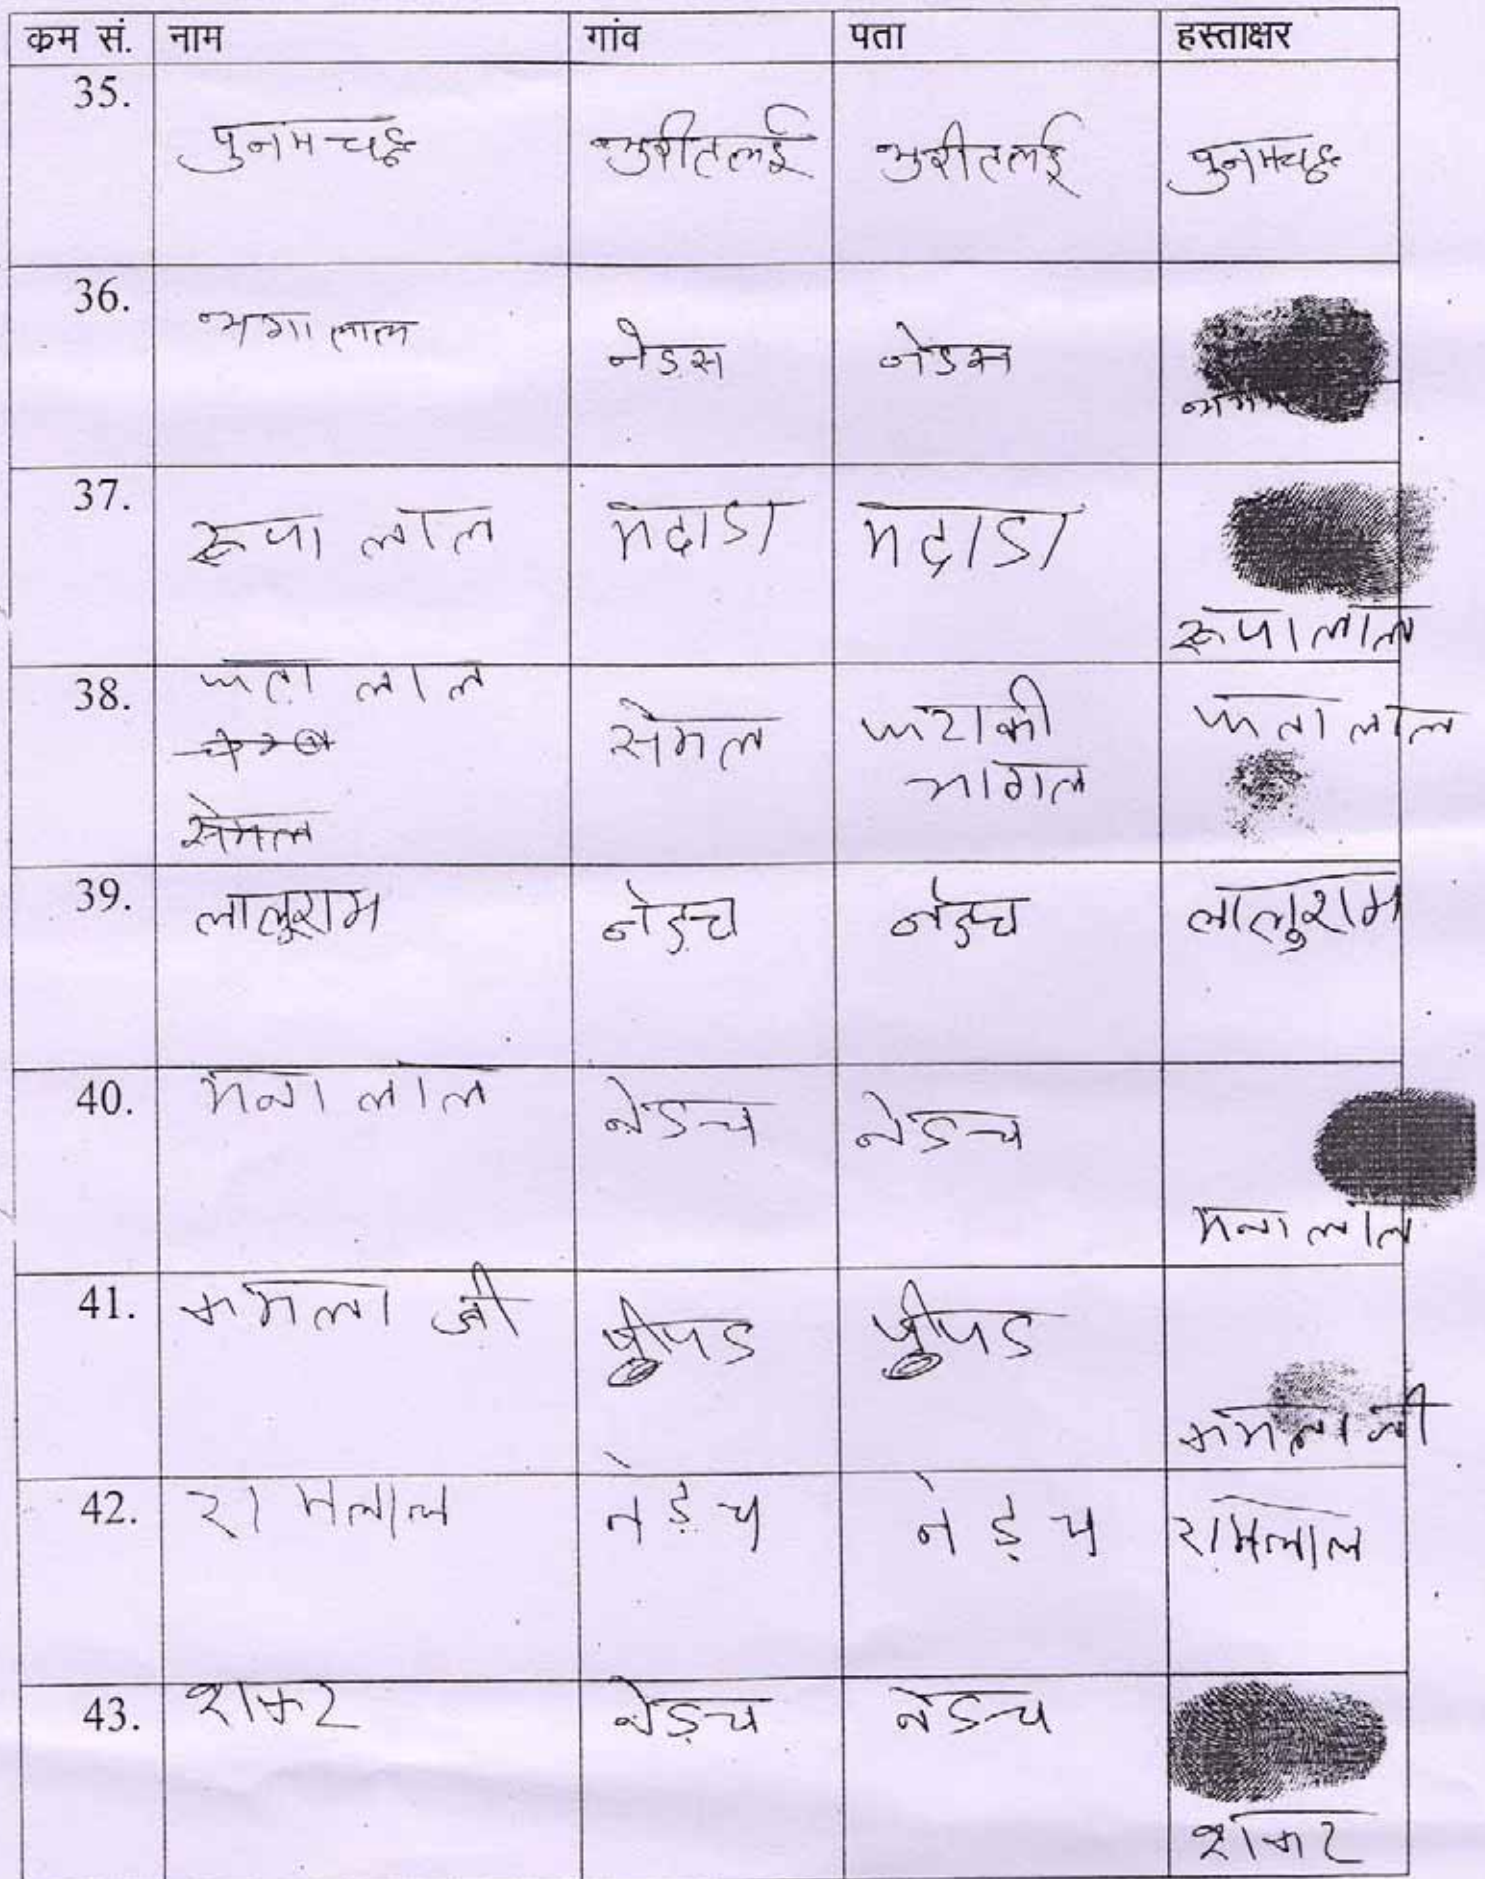 कम सं. नाम गांव पता हस्ताक्षर
35. पुनमचन्द्र भुरीतलाई भुरीतलाई पुनमचन्द्र
36. भगालाल नेडस नेडस
37. रूपा लाल मदाडा मदाडा
रूपा लाल
38. लाल सेमल लाल
भागल
सेमल
39. लालुराम नेड़च नेड़च लालुराम
40. मना लाल नेडच नेडच
मना लाल
41. कमला जी पीपड पीपड
कमला जी
42. रामलाल नेड़च नेड़च रामलाल
43. शकर नेड़च नेडच
शकर